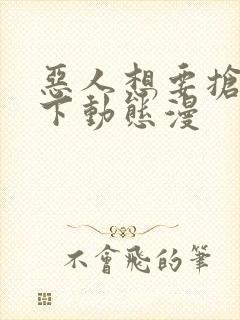 惡人想要搶
下動態漫
不會飛的筆